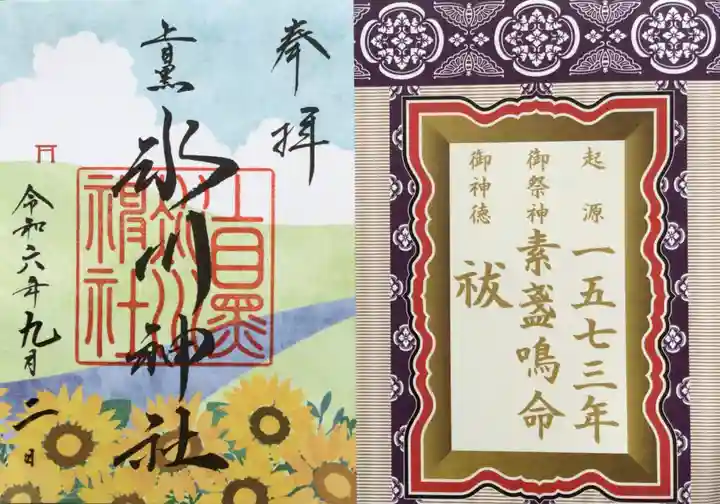 奉拝
上目黒
氷川神社
上目黒
氷川神社
令和六年九月二日
起源
一五七三年
御祭神
素盞鳴命
御神徳
祓